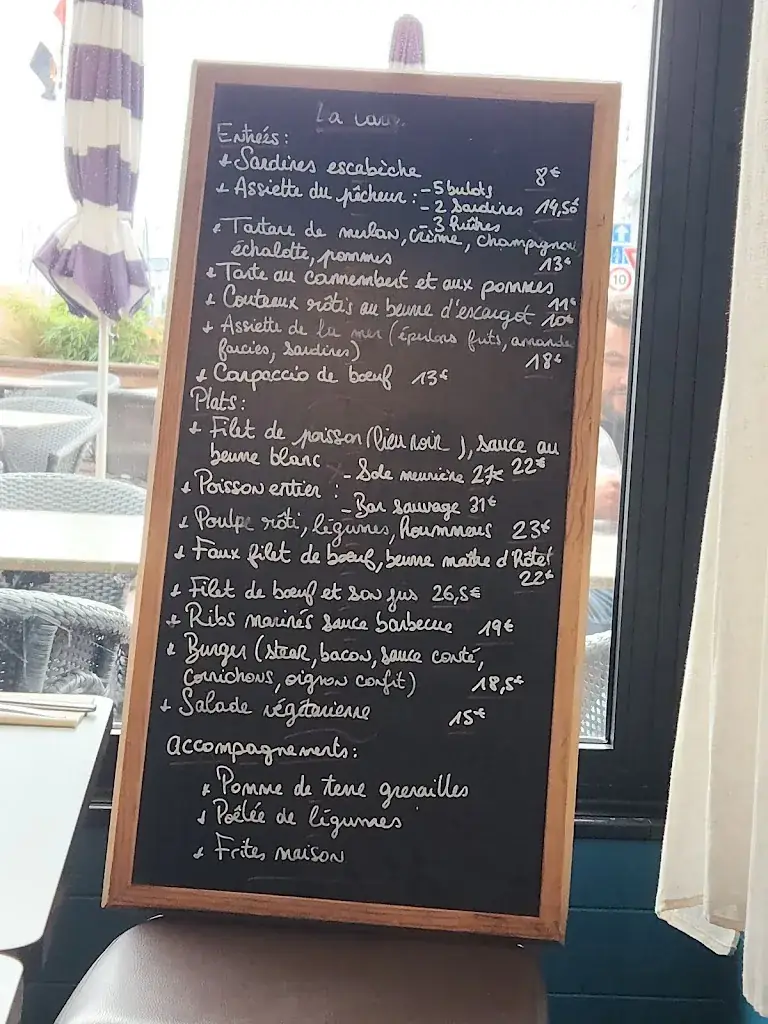 La carte
Entrées :
Sardines escabèche 8€
Assiette du pêcheur : - 5 bulots
- 2 Sardines 14,50
- 3 huîtres
Tartare de merlan, crème, champignon,
échalotte, pommes 13€
Tarte au camembert et aux pommes
11€
Couteaux rôtis au beurre d'escargot 10€
Assiette de la mer (éperlans frits, amandes
farcies, sardines) 18€
Carpaccio de boeuf 13€
Plats :
Filet de poisson (lieu noir ), sauce au
beurre blanc 22€
- Sole meunière 27€
Poisson entier :
- Bar sauvage 31€
Poulpe rôti, légumes, hoummous 23€
Faux filet de boeuf, beurre maître d'hôtel
22€
Filet de boeuf et son jus 26,5€
Ribs marinés sauce barbecue 19€
Burger (steak, bacon, sauce conté,
cornichons, oignon confit) 18,5€
Salade végétarienne 15€
Accompagnements :
Pomme de terre grenailles
Poêlée de légumes
Frites maison
10